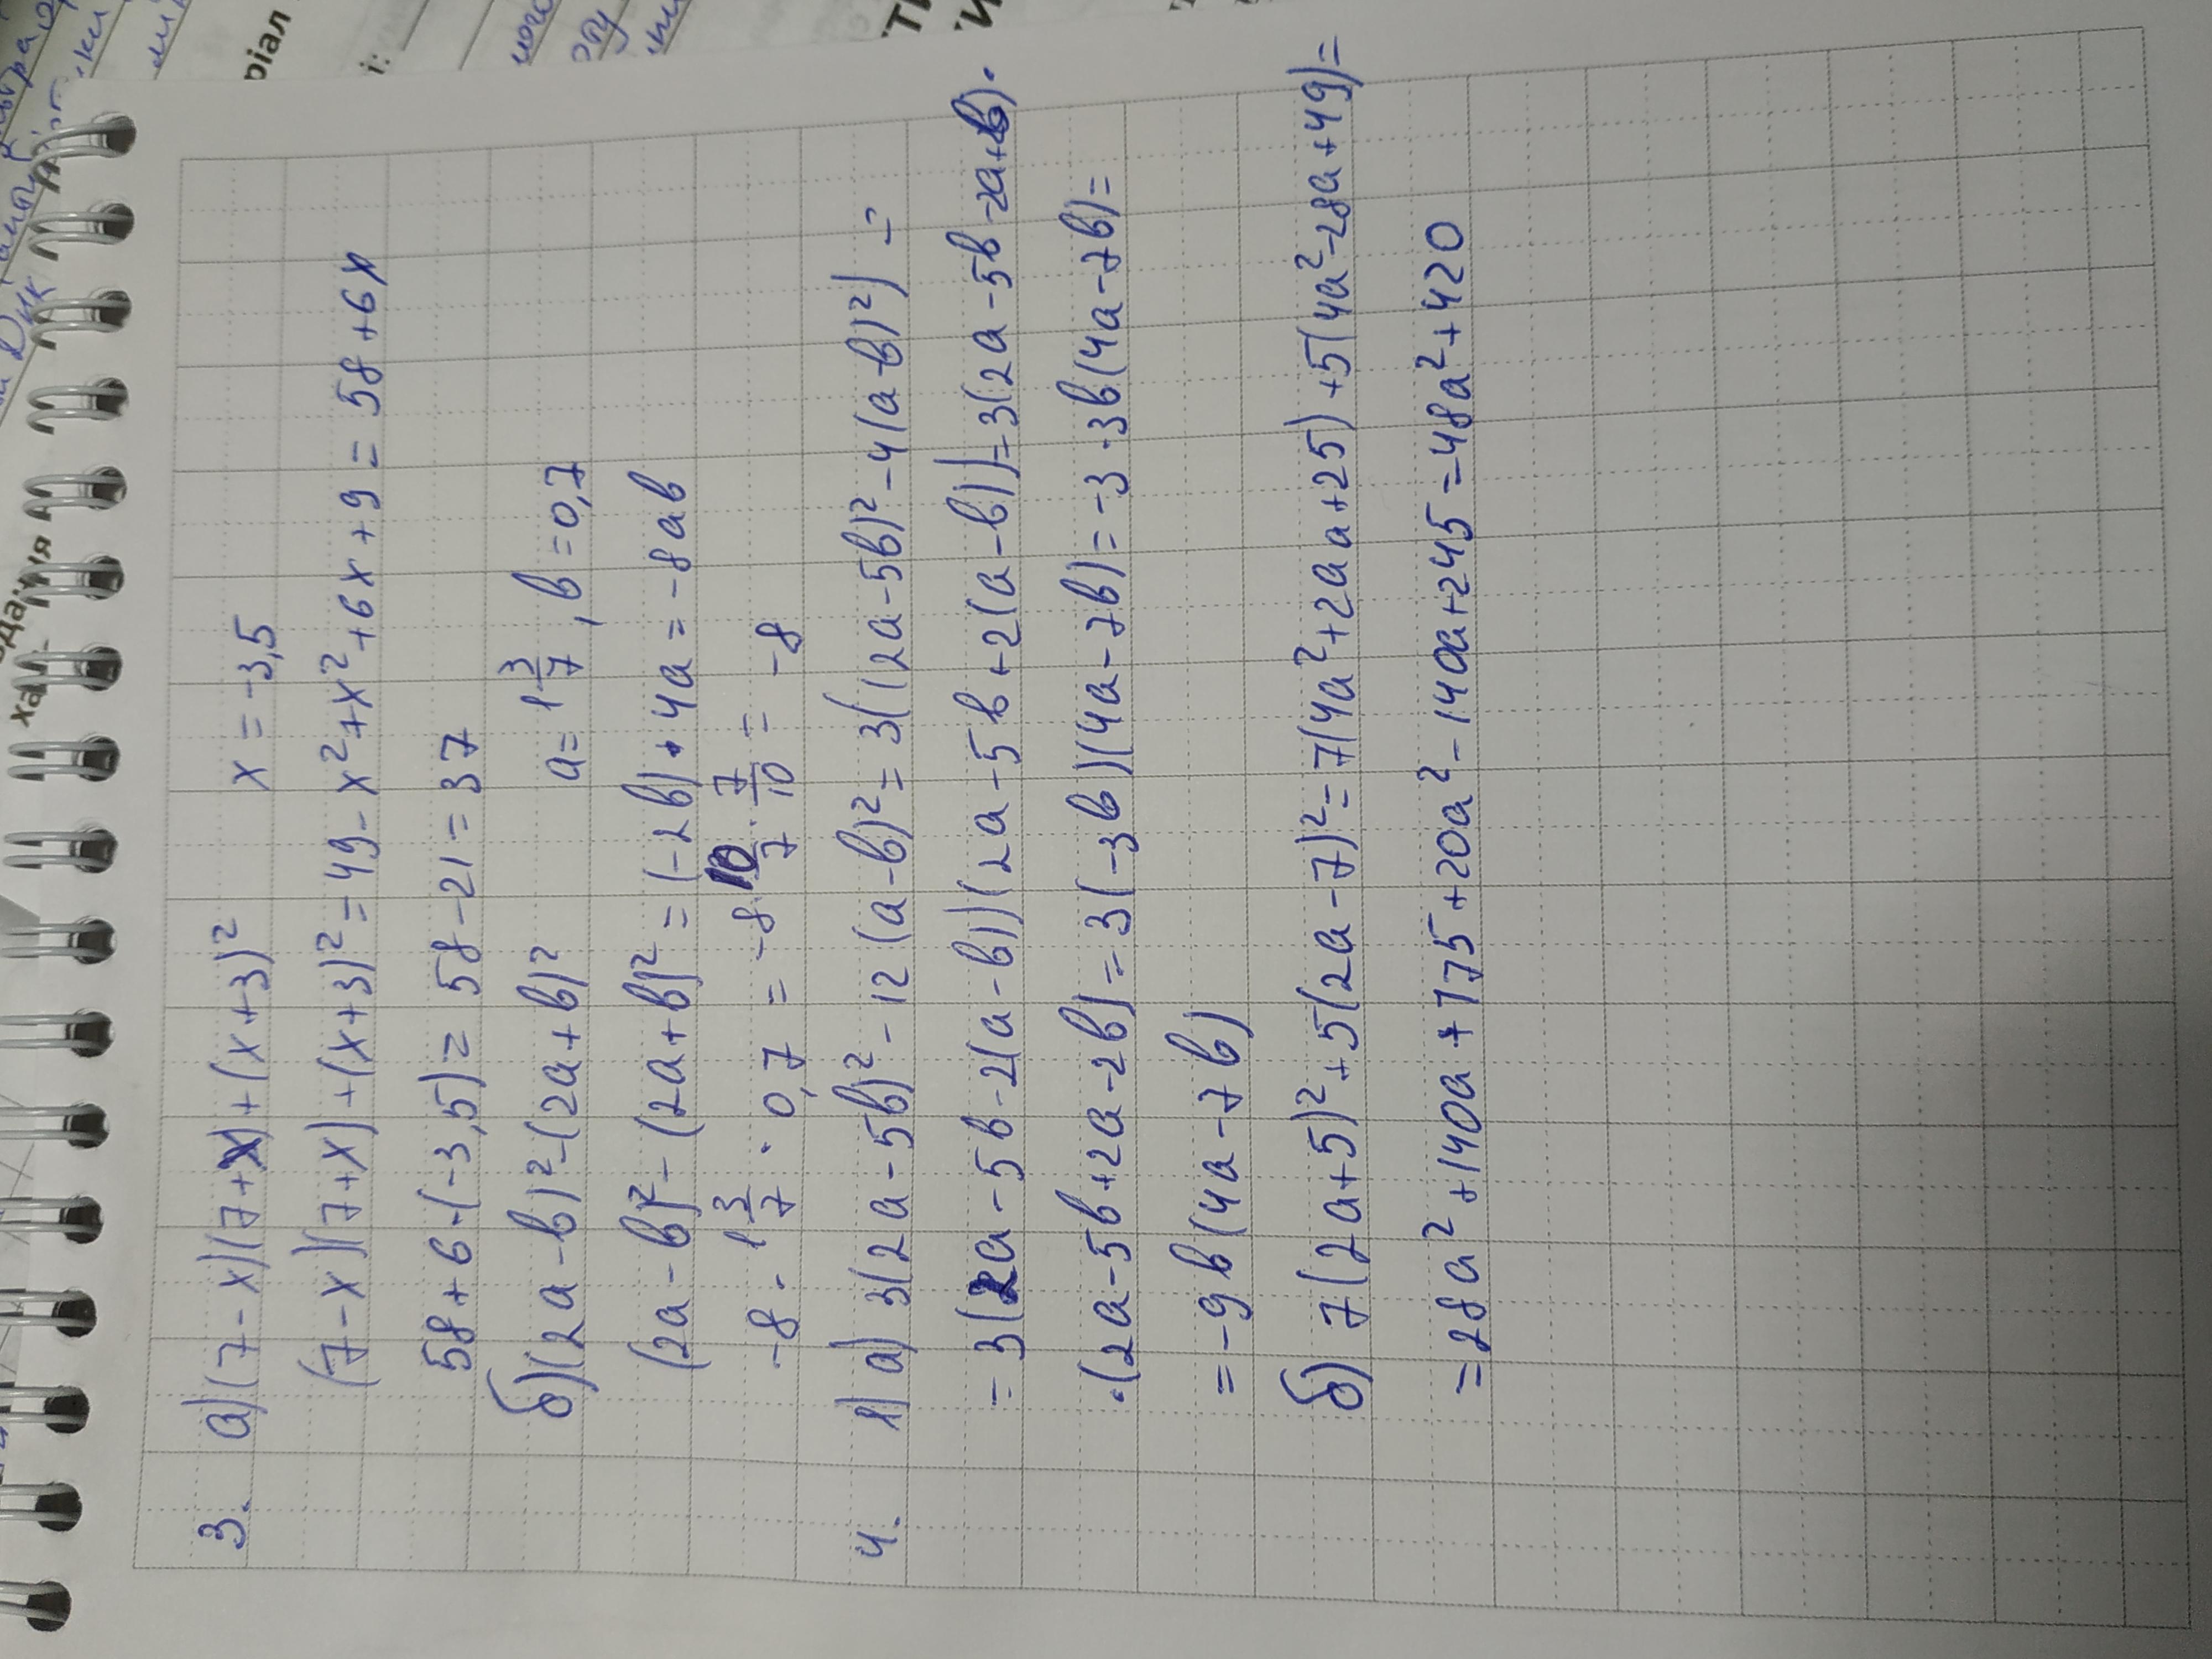 3. а) (7-x)(7+x)+(x+3)² x = -3,5
(7-x)(7+x)+(x+3)²=49-x²+x²+6x+9=58+6x
58+6·(-3,5)= 58-21=37
б)(2a-b)²-(2a+b)² a=1 3/7, b=0,7
(2a-b)²-(2a+b)²=(-2b)·4a=-8ab
-8·1 3/7·0,7=-8 10/7·7/10=-8
4. 1) а) 3(2a-5b)²-12(a-b)²=3((2a-5b)²-4(a-b)²)=
=3(2a-5b-2(a-b))(2a-5b+2(a-b))=3(2a-5b-2a+2b)·
·(2a-5b+2a-2b)=3(-3b)(4a-7b)=-3·3b(4a-7b)=
=-9b(4a-7b)
б) 7(2a+5)²+5(2a-7)²=7(4a²+2aa+25)+5(4a²-28a+49)=
=28a²+140a+175+20a²-140a+245=48a²+420
ріал
і: